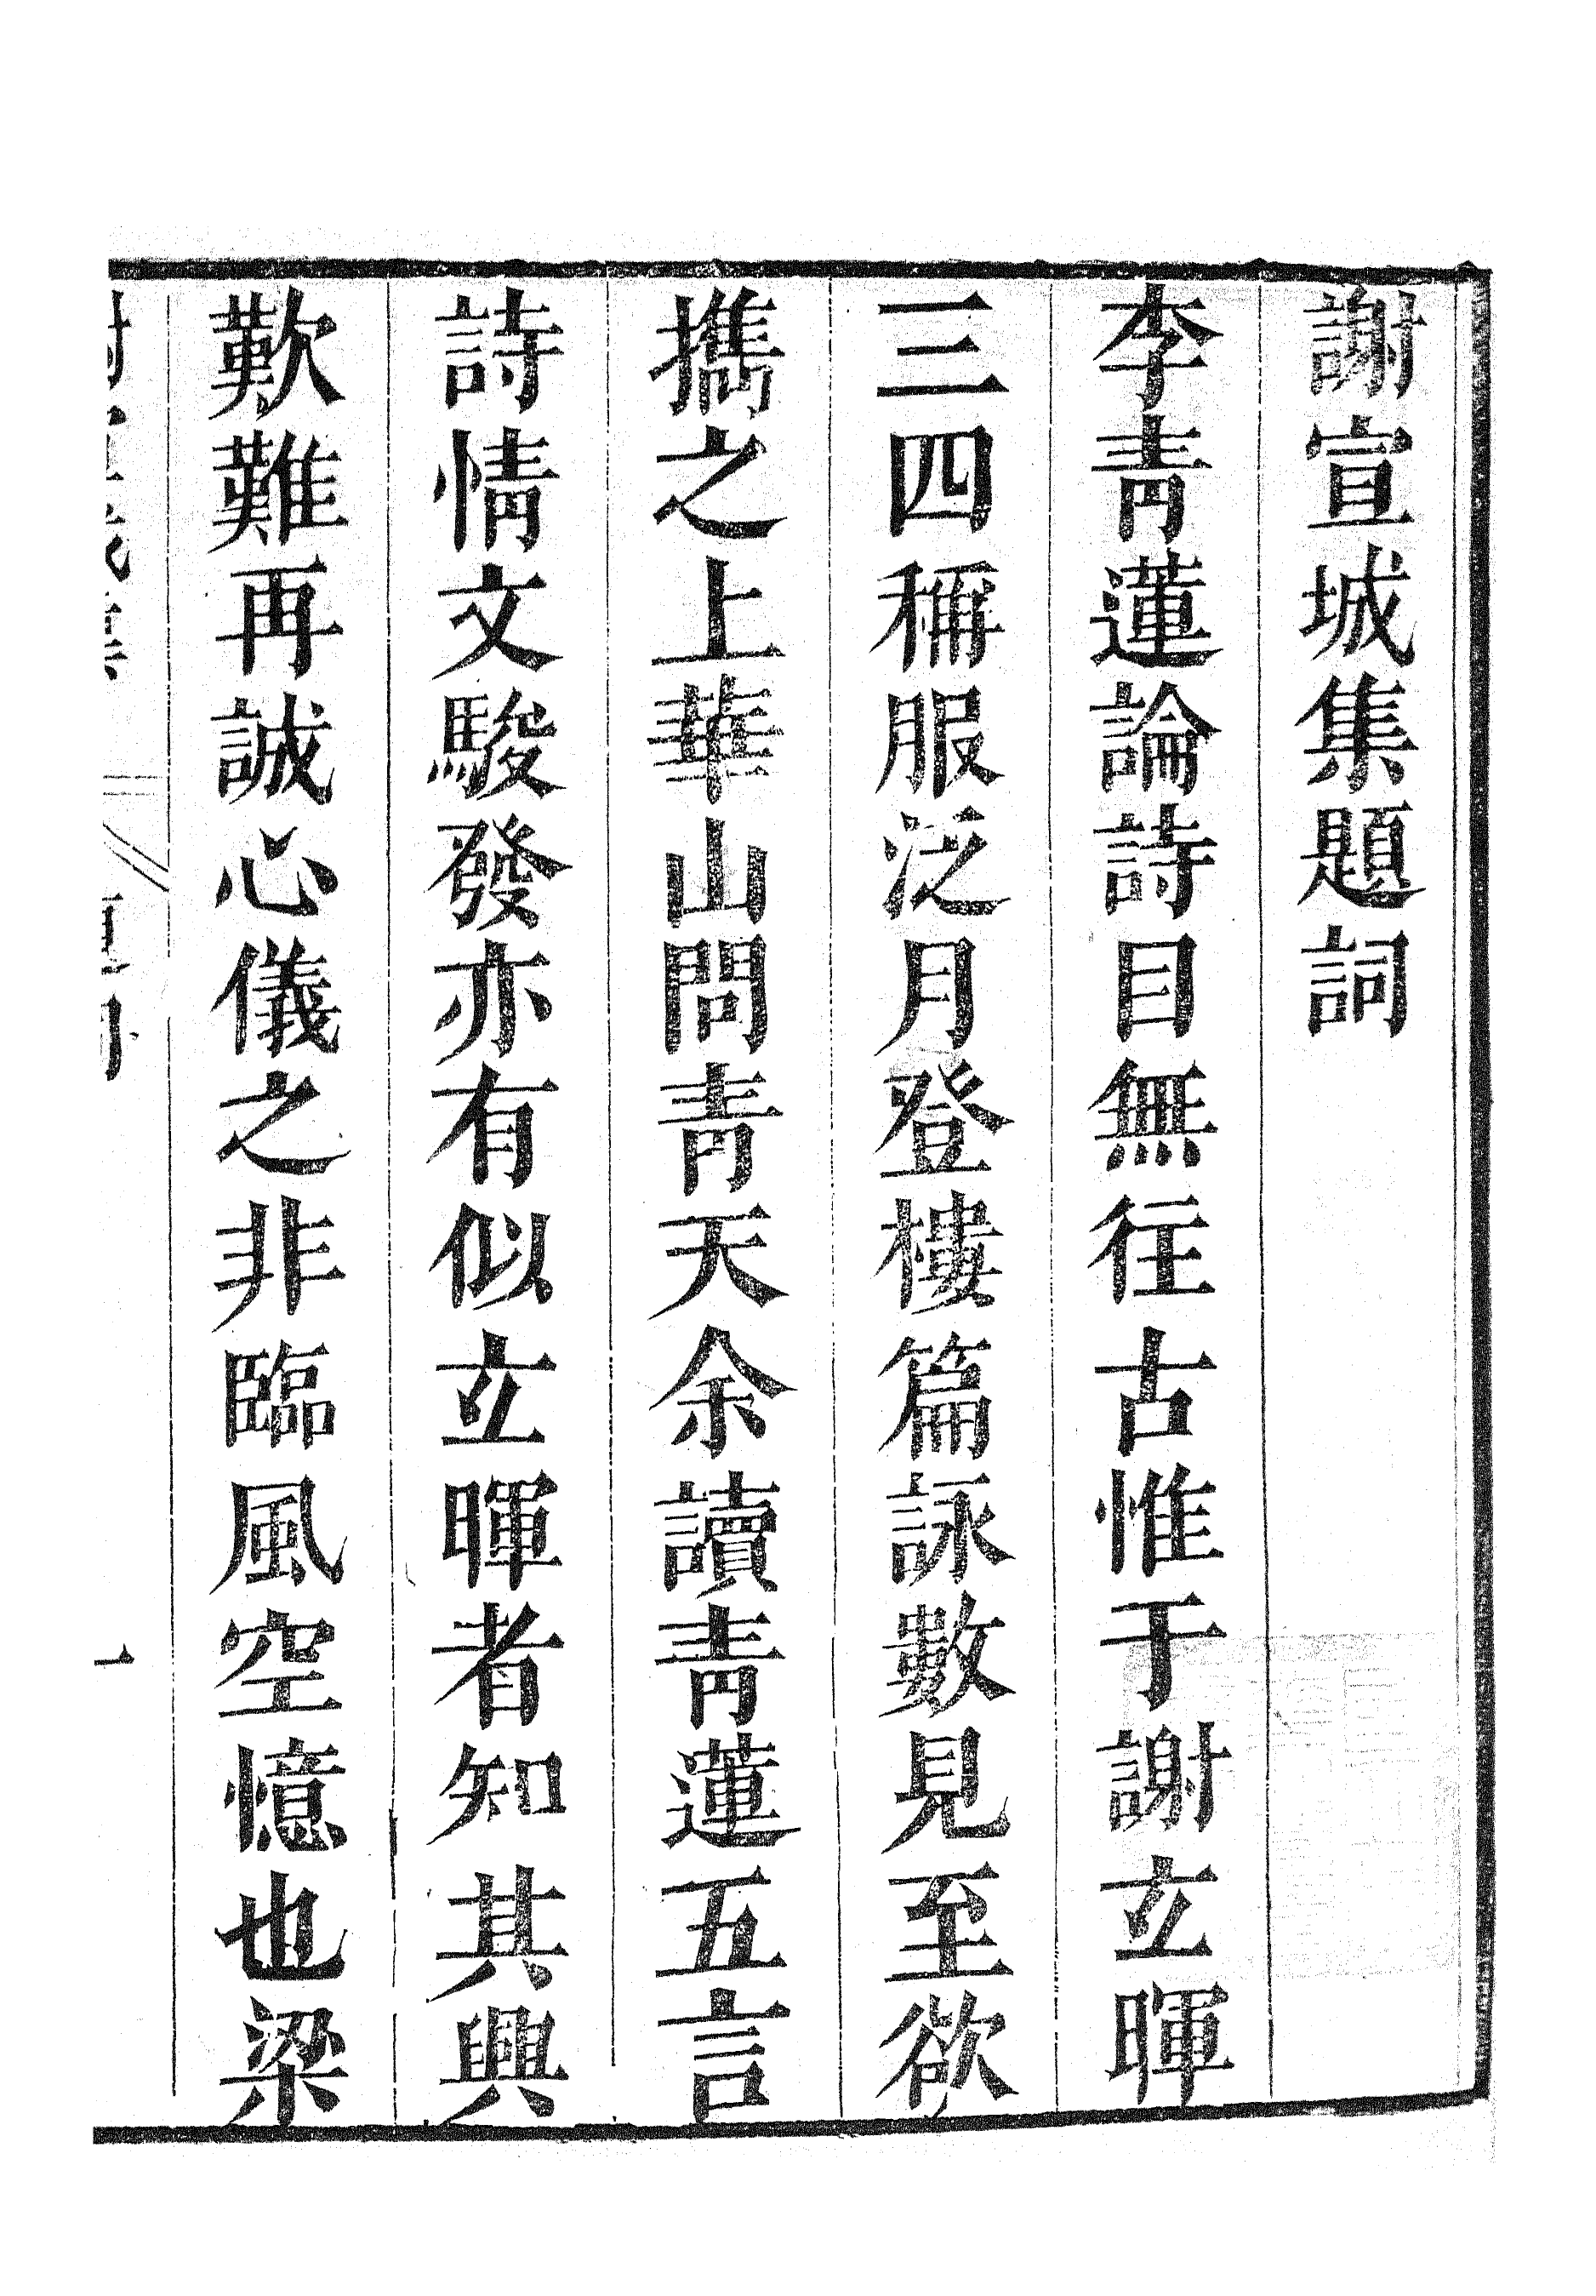 謝宣城集題詞
李靑蓮論詩目無往古惟于謝玄暉
三四稱服泛月登樓篇詠數見至欲
攜之上華山問靑天余讀靑蓮五言
詩情文駿發亦有似玄暉者知其興
歎難再誠心儀之非臨風空憶也梁